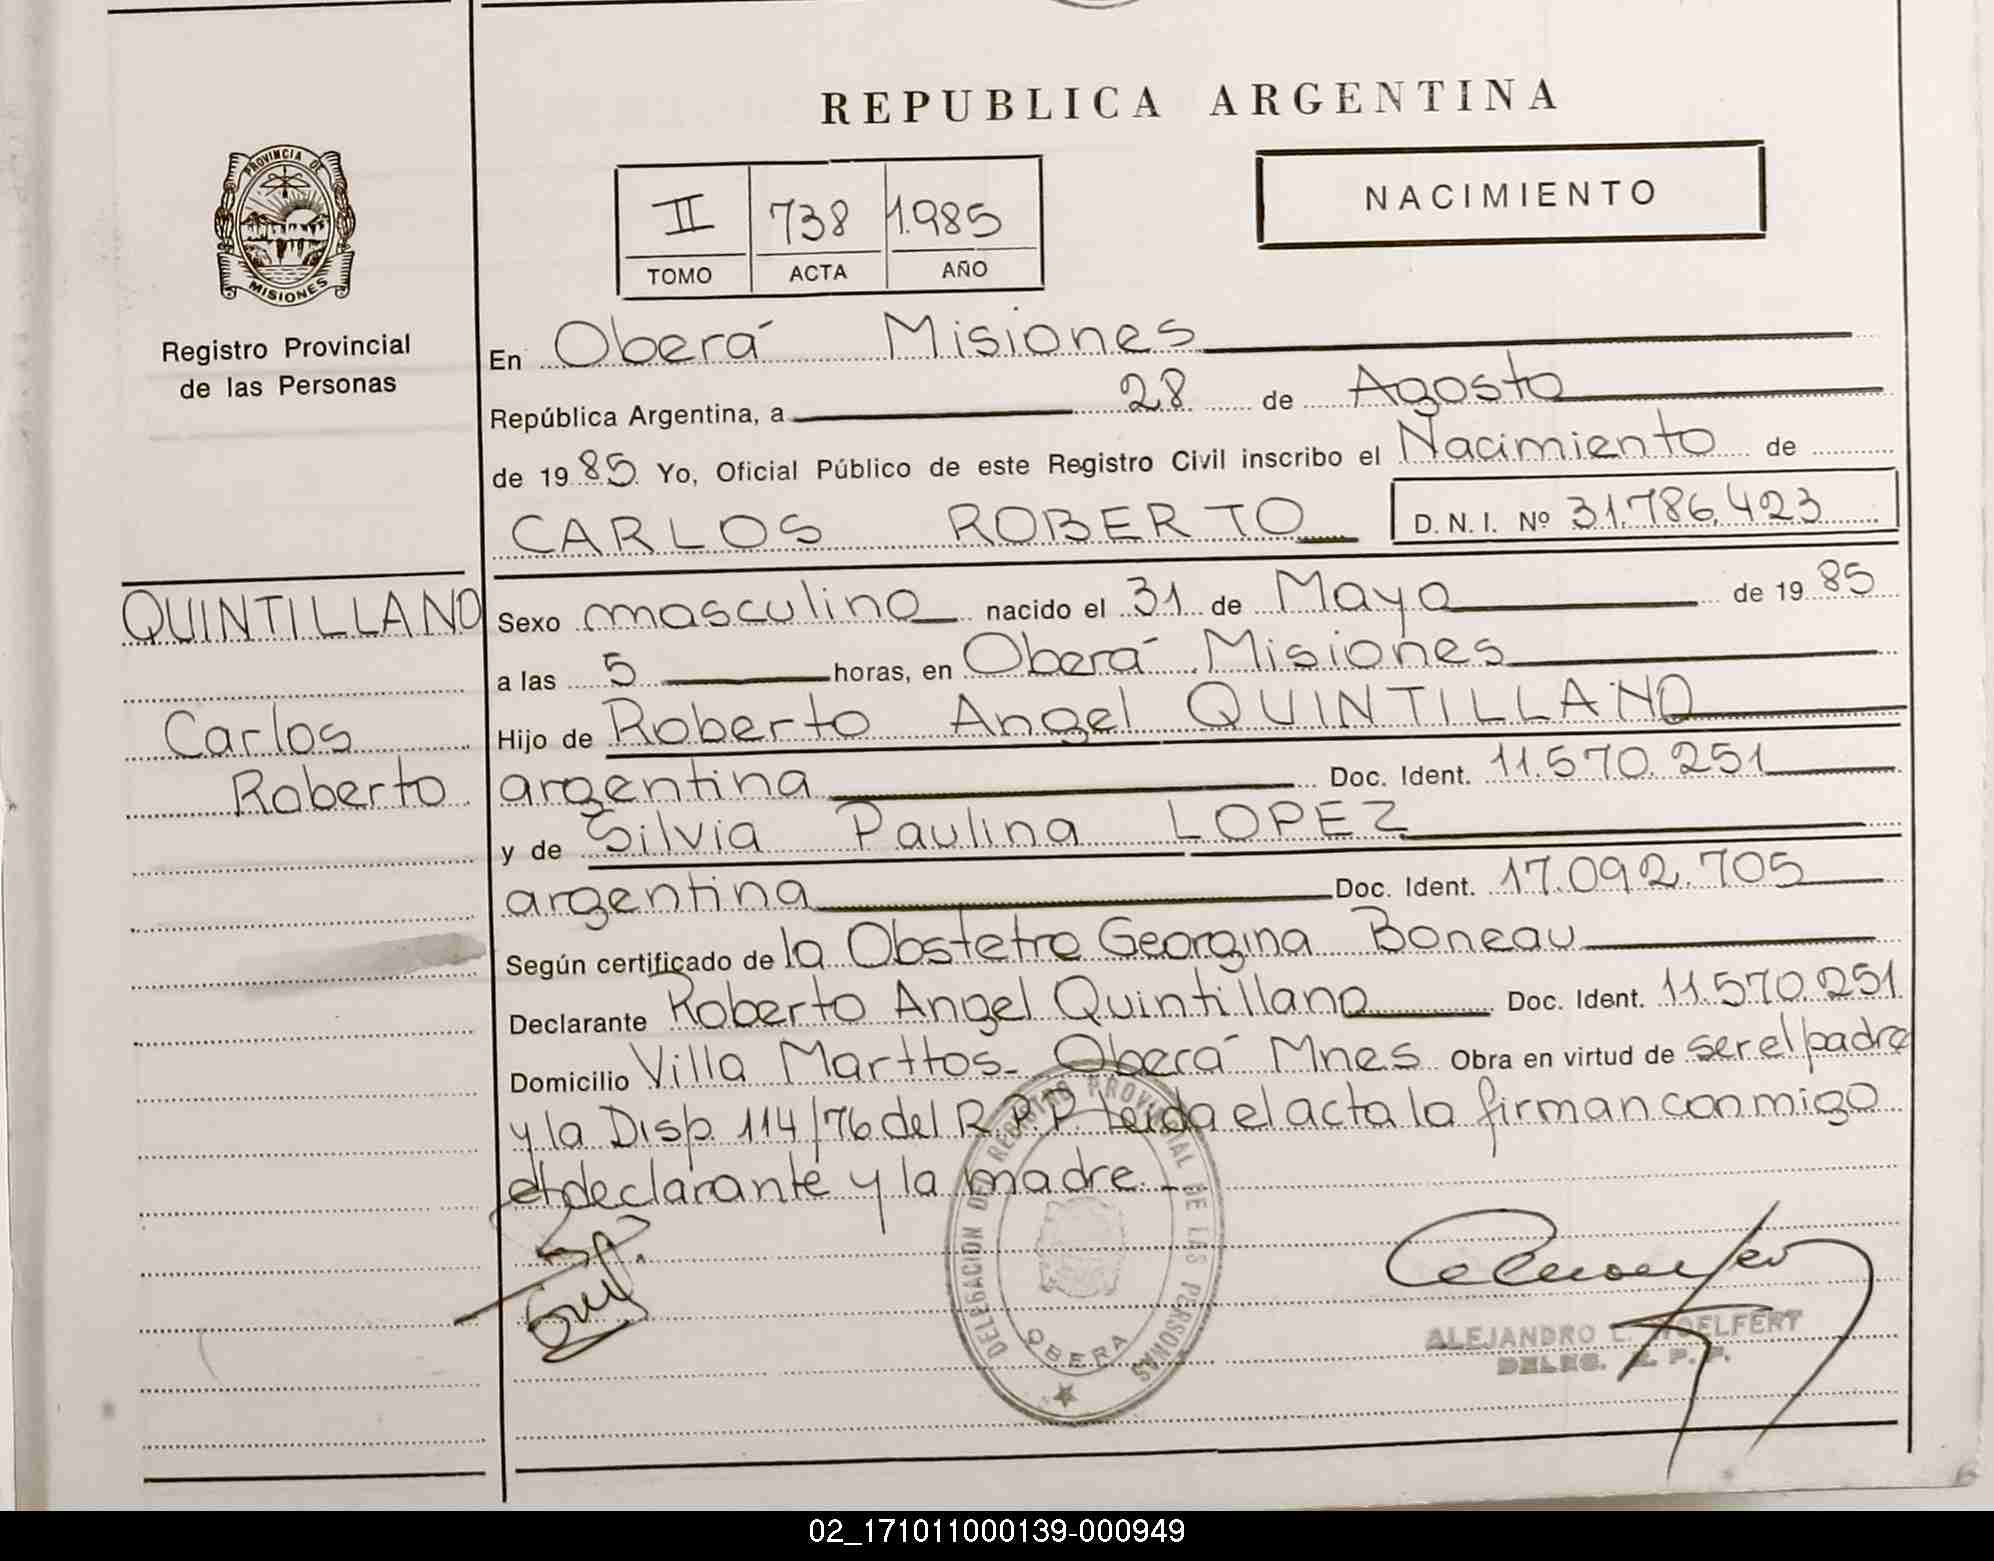 REPUBLICA ARGENTINA
PROVINCIA DE
MISIONES
Registro Provincial
de las Personas
NACIMIENTO
II 738 1.985
TOMO ACTA AÑO
En Oberá Misiones
República Argentina, a 28 de Agosto
de 1985 Yo, Oficial Público de este Registro Civil inscribo el Nacimiento de
CARLOS ROBERTO D.N.I. Nº 31.786.423
QUINTILLANO
Carlos
Roberto
Sexo masculino nacido el 31 de Mayo de 1985
a las 5 horas, en Oberá Misiones
Hijo de Roberto Angel QUINTILLANO
argentina Doc. Ident. 11.570.251
y de Silvia Paulina LOPEZ
argentina Doc. Ident. 17.092.705
Según certificado de la Obstetra Georgina Boneau
Declarante Roberto Angel Quintillano Doc. Ident. 11.570.251
Domicilio Villa Marttos- Oberá Mnes Obra en virtud de ser el padre
y la Disp. 114/76 del R.P.P. Leida el acta la firman conmigo
el declarante y la madre.-
DELEGACION DEL REGISTRO PROVINCIAL DE LAS PERSONAS
OBERA
ALEJANDRO L. WOELFERT
DELEG. R. P. P.
02_171011000139-000949